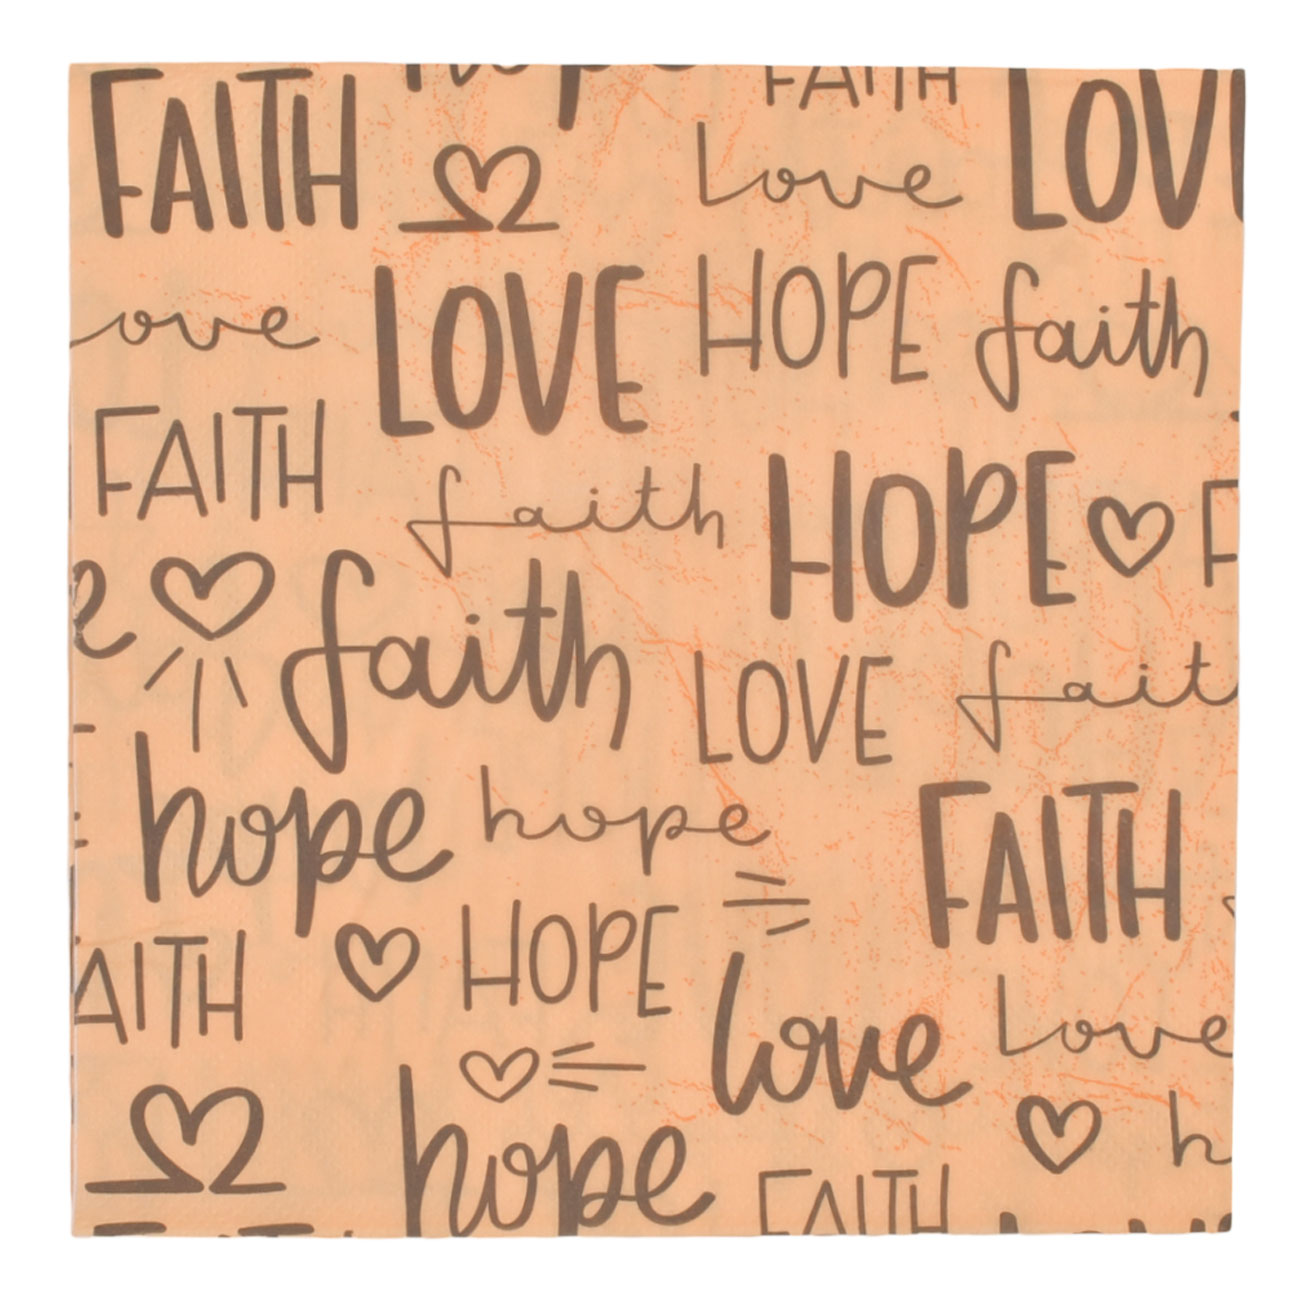 hope FAITH
FAITH LOV
Love
ove LOVE HOPE faith
FAITH
faith HOPE F
e faith
LOVE fait
hope hope FAITH
AITH HOPE
love Love
hope h
FAITH